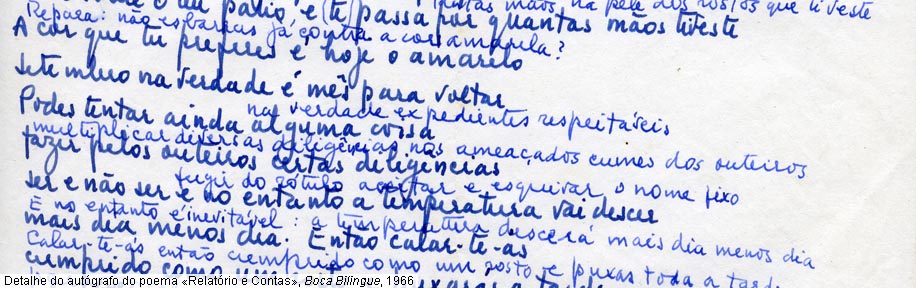 mãos, na pele dos rostos que tiveste
pátio e te passa por quantas mãos tiveste
Repara: não esbarras já contra a cor amarela?
A cor que tu preferes é hoje o amarelo
Setembro na verdade é mês para voltar
na verdade expedientes respeitáveis
Podes tentar ainda alguma coisa
multiplicar diversas diligências nos ameaçados cumes dos outeiros
fazer pelos outeiros certas diligências
fugir do rótulo aceitar e esquivar o nome fixo
ser e não ser e no entanto a temperatura vai descer
E no entanto é inevitável: a temperatura descerá mais dia menos dia
mais dia menos dia. Então calar-te-ás
Calar-te-ás então cumprido como um gosto se puxas toda a tarde
cumprido como um
Detalhe do autógrafo do poema «Relatório e Contas», Boca Bilingue, 1966